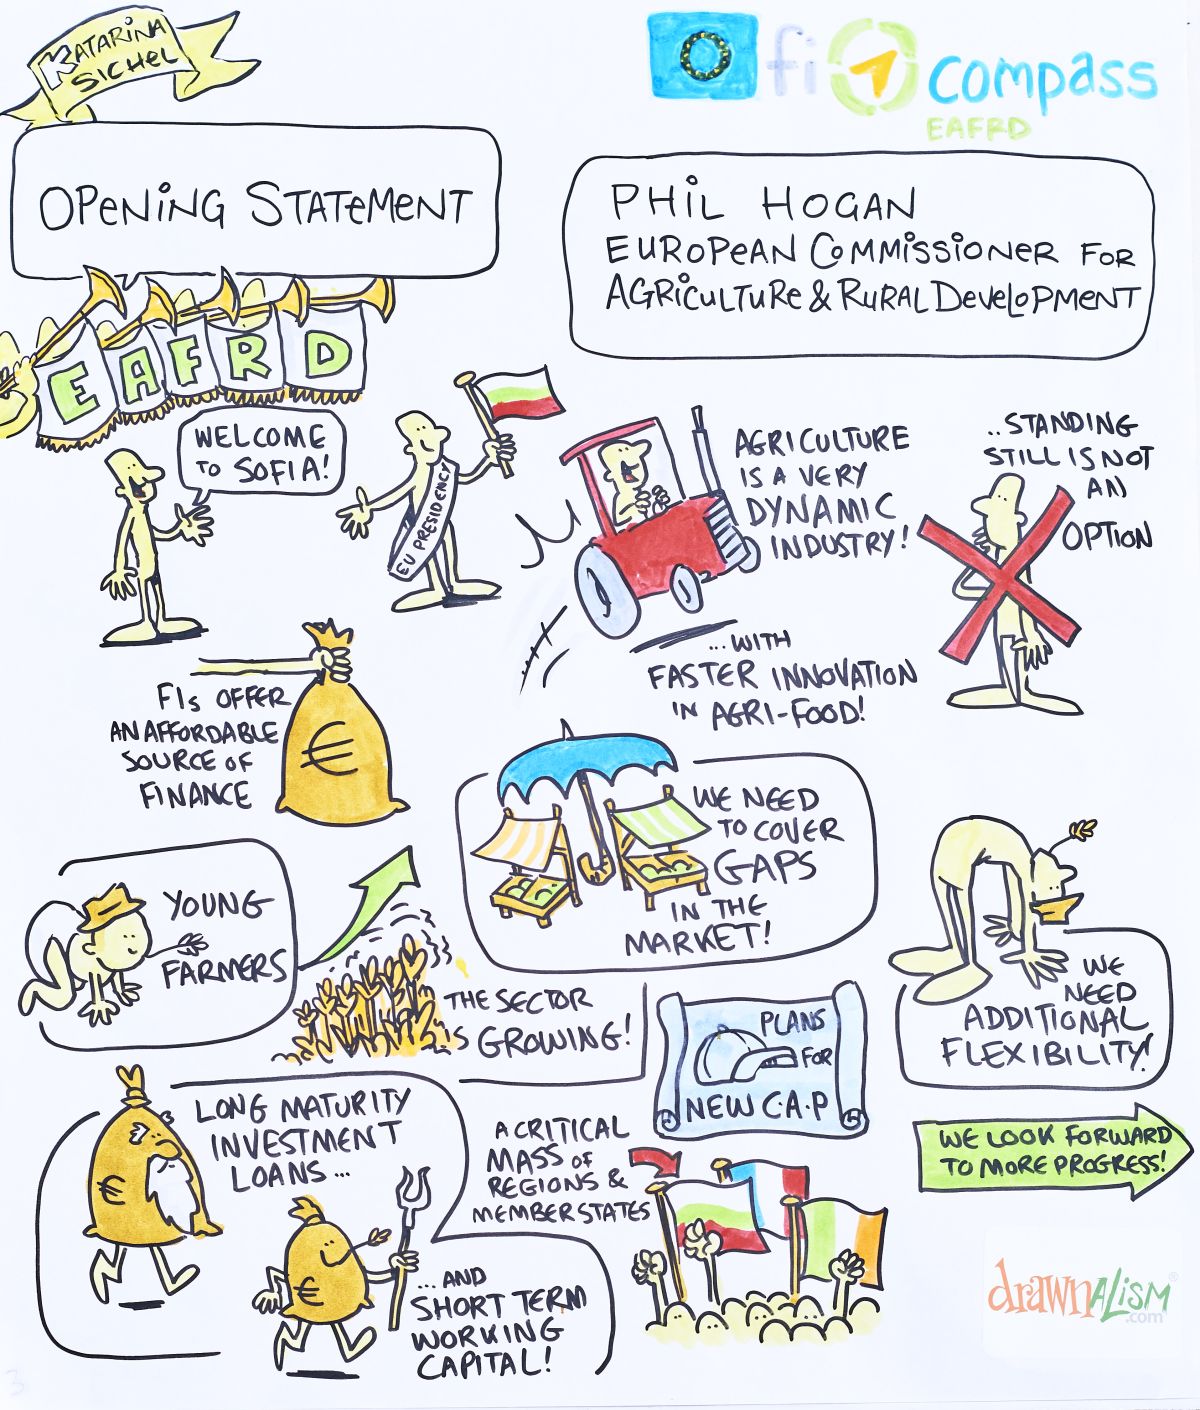 KATARINA
SICHEL
fi compass
EAFRD
OPENING STATEMENT
PHIL HOGAN
EUROPEAN COMMISSIONER FOR
AGRICULTURE & RURAL DEVELOPMENT
EAFRD
WELCOME
TO SOFIA!
EU PRESIDENCY
AGRICULTURE
IS A VERY
DYNAMIC
INDUSTRY!
..STANDING
STILL IS NOT
AN
OPTION
...WITH
FASTER INNOVATION
IN AGRI-FOOD!
FIs OFFER
AN AFFORDABLE
SOURCE OF
FINANCE
€
WE NEED
TO COVER
GAPS
IN THE
MARKET!
YOUNG
FARMERS
THE SECTOR
IS GROWING!
WE
NEED
ADDITIONAL
FLEXIBILITY!
PLANS
FOR
NEW C.A.P
LONG MATURITY
INVESTMENT
LOANS...
€
A CRITICAL
MASS OF
REGIONS &
MEMBER STATES
WE LOOK FORWARD
TO MORE PROGRESS!
€
...AND
SHORT TERM
WORKING
CAPITAL!
drawnalism®
.com
3